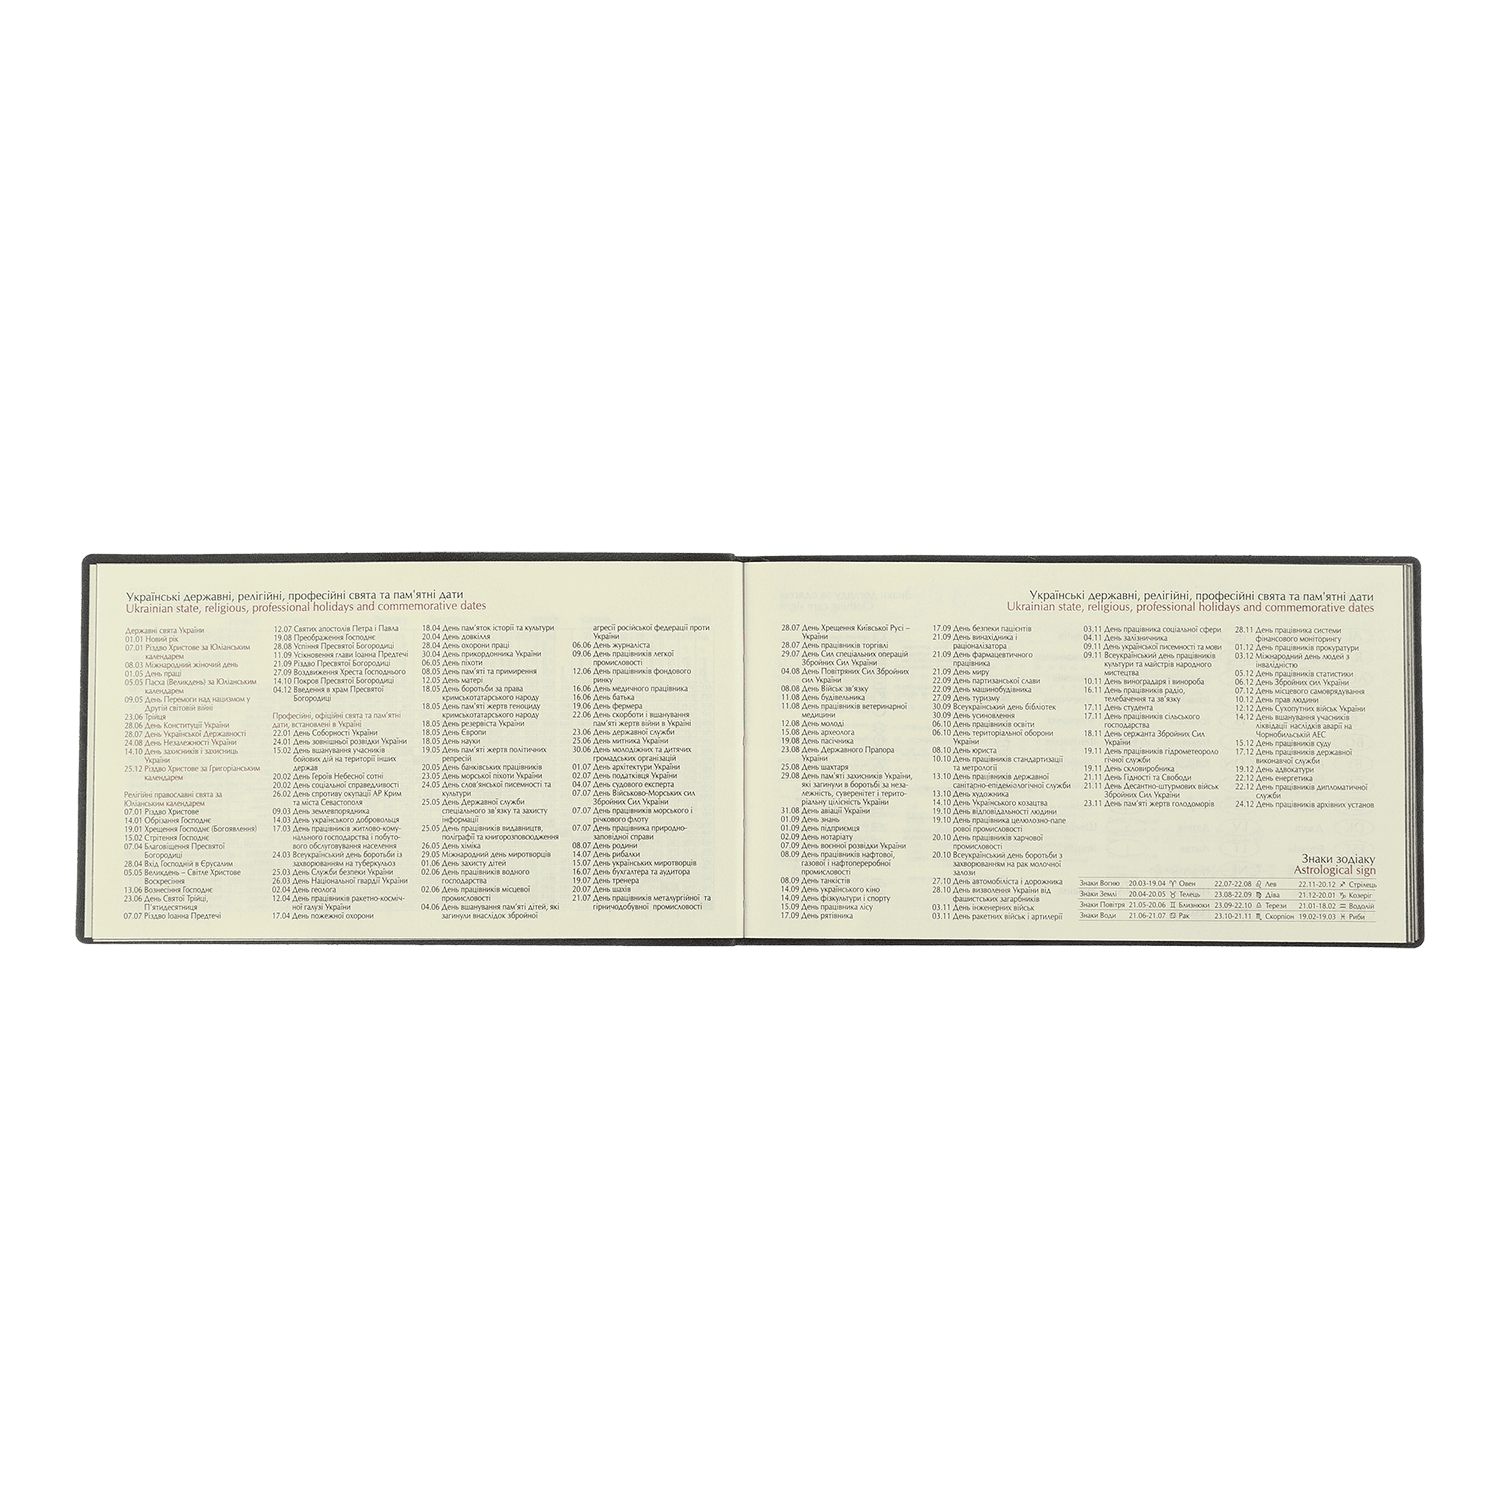 Українські державні, релігійні, професійні свята та пам'ятні дати
Ukrainian state, religious, professional holidays and commemorative dates
Державні свята України
01.01 Новий рік
07.01 Різдво Христове за Юліанським
календарем
08.03 Міжнародний жіночий день
01.05 День праці
05.05 Пасха (Великдень) за Юліанським
календарем
09.05 День Перемоги над нацизмом у
Другій світовій війні
23.06 Трійця
28.06 День Конституції України
28.07 День Української Державності
24.08 День Незалежності України
14.10 День захисників і захисниць
України
25.12 Різдво Христове за Григоріанським
календарем
Релігійні православні свята за
Юліанським календарем
07.01 Різдво Христове
14.01 Обрізання Господнє
19.01 Хрещення Господнє (Богоявлення)
15.02 Стрітення Господнє
07.04 Благовіщення Пресвятої
Богородиці
28.04 Вхід Господній в Єрусалим
05.05 Великдень – Світле Христове
Воскресіння
13.06 Вознесіння Господнє
23.06 День Святої Трійці,
П'ятидесятниця
07.07 Різдво Іоанна Предтечі
12.07 Святих апостолів Петра і Павла
19.08 Преображення Господнє
28.08 Успіння Пресвятої Богородиці
11.09 Усікновення глави Іоанна Предтечі
21.09 Різдво Пресвятої Богородиці
27.09 Воздвиження Хреста Господнього
14.10 Покров Пресвятої Богородиці
04.12 Введення в храм Пресвятої
Богородиці
Професійні, офіційні свята та пам'ятні
дати, встановлені в Україні
22.01 День Соборності України
24.01 День зовнішньої розвідки України
15.02 День вшанування учасників
бойових дій на території інших
держав
20.02 День Героїв Небесної сотні
20.02 День соціальної справедливості
26.02 День спротиву окупації АР Крим
та міста Севастополя
09.03 День землевпорядника
14.03 День українського добровольця
17.03 День працівників житлово-кому-
нального господарства і побуто-
вого обслуговування населення
24.03 Всеукраїнський день боротьби із
захворюванням на туберкульоз
25.03 День Служби безпеки України
26.03 День Національної гвардії України
02.04 День геолога
12.04 День працівників ракетно-косміч-
ної галузі України
17.04 День пожежної охорони
18.04 День пам'яток історії та культури
20.04 День довкілля
28.04 День охорони праці
30.04 День прикордонника України
08.05 День пам'яті та примирення
06.05 День піхоти
12.05 День матері
18.05 День боротьби за права
кримськотатарського народу
18.05 День пам'яті жертв геноциду
кримськотатарського народу
18.05 День резервіста України
18.05 День Європи
18.05 День науки
19.05 День пам'яті жертв політичних
репресій
20.05 День банківських працівників
23.05 День морської піхоти України
24.05 День слов'янської писемності та
культури
25.05 День Державної служби
спеціального зв'язку та захисту
інформації
25.05 День працівників видавництв,
поліграфії та книгорозповсюдження
26.05 День хіміка
29.05 Міжнародний день миротворців
01.06 День захисту дітей
02.06 День працівників водного
господарства
02.06 День працівників місцевої
промисловості
04.06 День вшанування пам'яті дітей, які
загинули внаслідок збройної
агресії російської федерації проти
України
06.06 День журналіста
09.06 День працівників легкої
промисловості
12.06 День працівників фондового
ринку
16.06 День медичного працівника
16.06 День батька
19.06 День фермера
22.06 День скорботи і вшанування
пам'яті жертв війни в Україні
23.06 День державної служби
25.06 День митника України
30.06 День молодіжних та дитячих
громадських організацій
01.07 День архітектури України
02.07 День податківця України
04.07 День судового експерта
07.07 День Військово-Морських сил
Збройних Сил України
07.07 День працівників морського і
річкового флоту
07.07 День працівника природно-
заповідної справи
08.07 День родини
14.07 День рибалки
15.07 День українських миротворців
16.07 День бухгалтера та аудитора
19.07 День тренера
20.07 День шахів
21.07 День працівників металургійної та
гірничодобувної промисловості
Українські державні, релігійні, професійні свята та пам'ятні дати
Ukrainian state, religious, professional holidays and commemorative dates
28.07 День Хрещення Київської Русі –
України
28.07 День працівників торгівлі
29.07 День Сил спеціальних операцій
Збройних Сил України
04.08 День Повітряних Сил Збройних
сил України
08.08 День Військ зв'язку
11.08 День будівельника
11.08 День працівників ветеринарної
медицини
12.08 День молоді
15.08 День археолога
19.08 День пасічника
23.08 День Державного Прапора
України
25.08 День шахтаря
29.08 День пам'яті захисників України,
які загинули в боротьбі за неза-
лежність, суверенітет і терито-
ріальну цілісність України
31.08 День авіації України
01.09 День знань
01.09 День підприємця
02.09 День нотаріату
07.09 День воєнної розвідки України
08.09 День працівників нафтової,
газової і нафтопереробної
промисловості
08.09 День танкістів
14.09 День українського кіно
14.09 День фізкультури і спорту
15.09 День працівника лісу
17.09 День рятівника
17.09 День безпеки пацієнтів
21.09 День винахідника і
раціоналізатора
21.09 День фармацевтичного
працівника
21.09 День миру
22.09 День партизанської слави
22.09 День машинобудівника
27.09 День туризму
30.09 Всеукраїнський день бібліотек
30.09 День усиновлення
06.10 День працівників освіти
06.10 День територіальної оборони
України
08.10 День юриста
10.10 День працівників стандартизації
та метрології
13.10 День працівників державної
санітарно-епідеміологічної служби
13.10 День художника
14.10 День Українського козацтва
19.10 День відповідальності людини
19.10 День працівника целюлозно-папе
рової промисловості
20.10 День працівників харчової
промисловості
20.10 Всеукраїнський день боротьби з
захворюванням на рак молочної
залози
27.10 День автомобіліста і дорожника
28.10 День визволення України від
фашистських загарбників
03.11 День інженерних військ
03.11 День ракетних військ і артилерії
03.11 День працівника соціальної сфери
04.11 День залізничника
09.11 День української писемності та мови
09.11 Всеукраїнський день працівників
культури та майстрів народного
мистецтва
10.11 День виноградаря і винороба
16.11 День працівників радіо,
телебачення та зв'язку
17.11 День студента
17.11 День працівників сільського
господарства
18.11 День сержанта Збройних Сил
України
19.11 День працівників гідрометеороло
гічної служби
19.11 День скловиробника
21.11 День Гідності та Свободи
21.11 День Десантно-штурмових військ
Збройних Сил України
23.11 День пам'яті жертв голодоморів
28.11 День працівника системи
фінансового моніторингу
01.12 День працівників прокуратури
03.12 Міжнародний день людей з
інвалідністю
05.12 День працівників статистики
06.12 День Збройних сил України
07.12 День місцевого самоврядування
10.12 День прав людини
12.12 День Сухопутних військ України
14.12 День вшанування учасників
ліквідації наслідків аварії на
Чорнобильській АЕС
15.12 День працівників суду
17.12 День працівників державної
виконавчої служби
19.12 День адвокатури
22.12 День енергетика
22.12 День працівників дипломатичної
служби
24.12 День працівників архівних установ
Знаки зодіаку
Astrological sign
Знаки Вогню 20.03-19.04 ♈ Овен 22.07-22.08 ♌ Лев 22.11-20.12 ♐ Стрілець
Знаки Землі 20.04-20.05 ♉ Телець 23.08-22.09 ♍ Діва 21.12-20.01 ♑ Козеріг
Знаки Повітря 21.05-20.06 ♊ Близнюки 23.09-22.10 ♎ Терези 21.01-18.02 ♒ Водолій
Знаки Води 21.06-21.07 ♋ Рак 23.10-21.11 ♏ Скорпіон 19.02-19.03 ♓ Риби